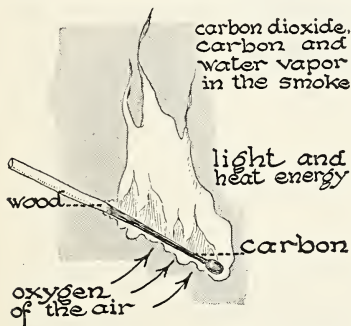 carbon dioxide,
carbon and
water vapor
in the smoke
light and
heat energy
wood
carbon
oxygen
of the air